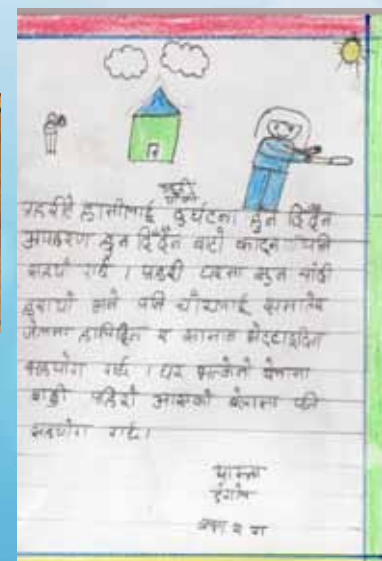 प्रहरीले हामीलाई दुर्घटना हुन दिँदैन
अपहरण हुन दिँदैन बाटो काट्न पनि
सहयोग गर्छ । प्रहरी घरमा सुन चाँदी
हरायो भने पनि चोरलाई समातेर
जेलमा हालिदिन र सामान भेट्टाइदिन
सहयोग गर्छ । घर भत्केको बेलामा
बाढी पहिरो आएको बेलामा पनि
सहयोग गर्छ।
कक्षा २